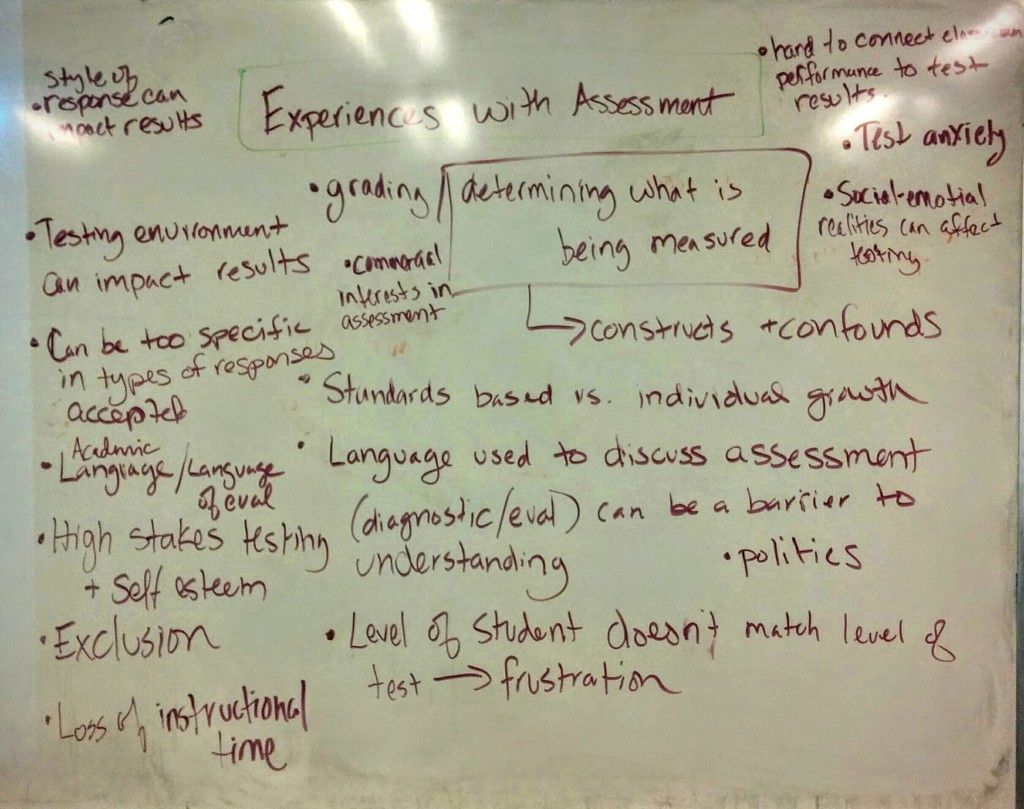 Experiences with Assessment
style of
• response can
impact results
• hard to connect classroom
performance to test
results.
• Test anxiety
• Social-emotial
realities can affect
testing
• grading/determining what is
being measured
→ constructs + confounds
• commercial
interests in
assessment
• Testing environment
can impact results
• Can be too specific
in types of responses
accepted
Academic
• Language/Language
of eval
• High stakes testing
+ Self esteem
• Exclusion
• Loss of instructional
time
• Standards based vs. individual growth
• Language used to discuss assessment
(diagnostic/eval) can be a barrier to
understanding
• politics
• Level of student doesn't match level of
test → frustration